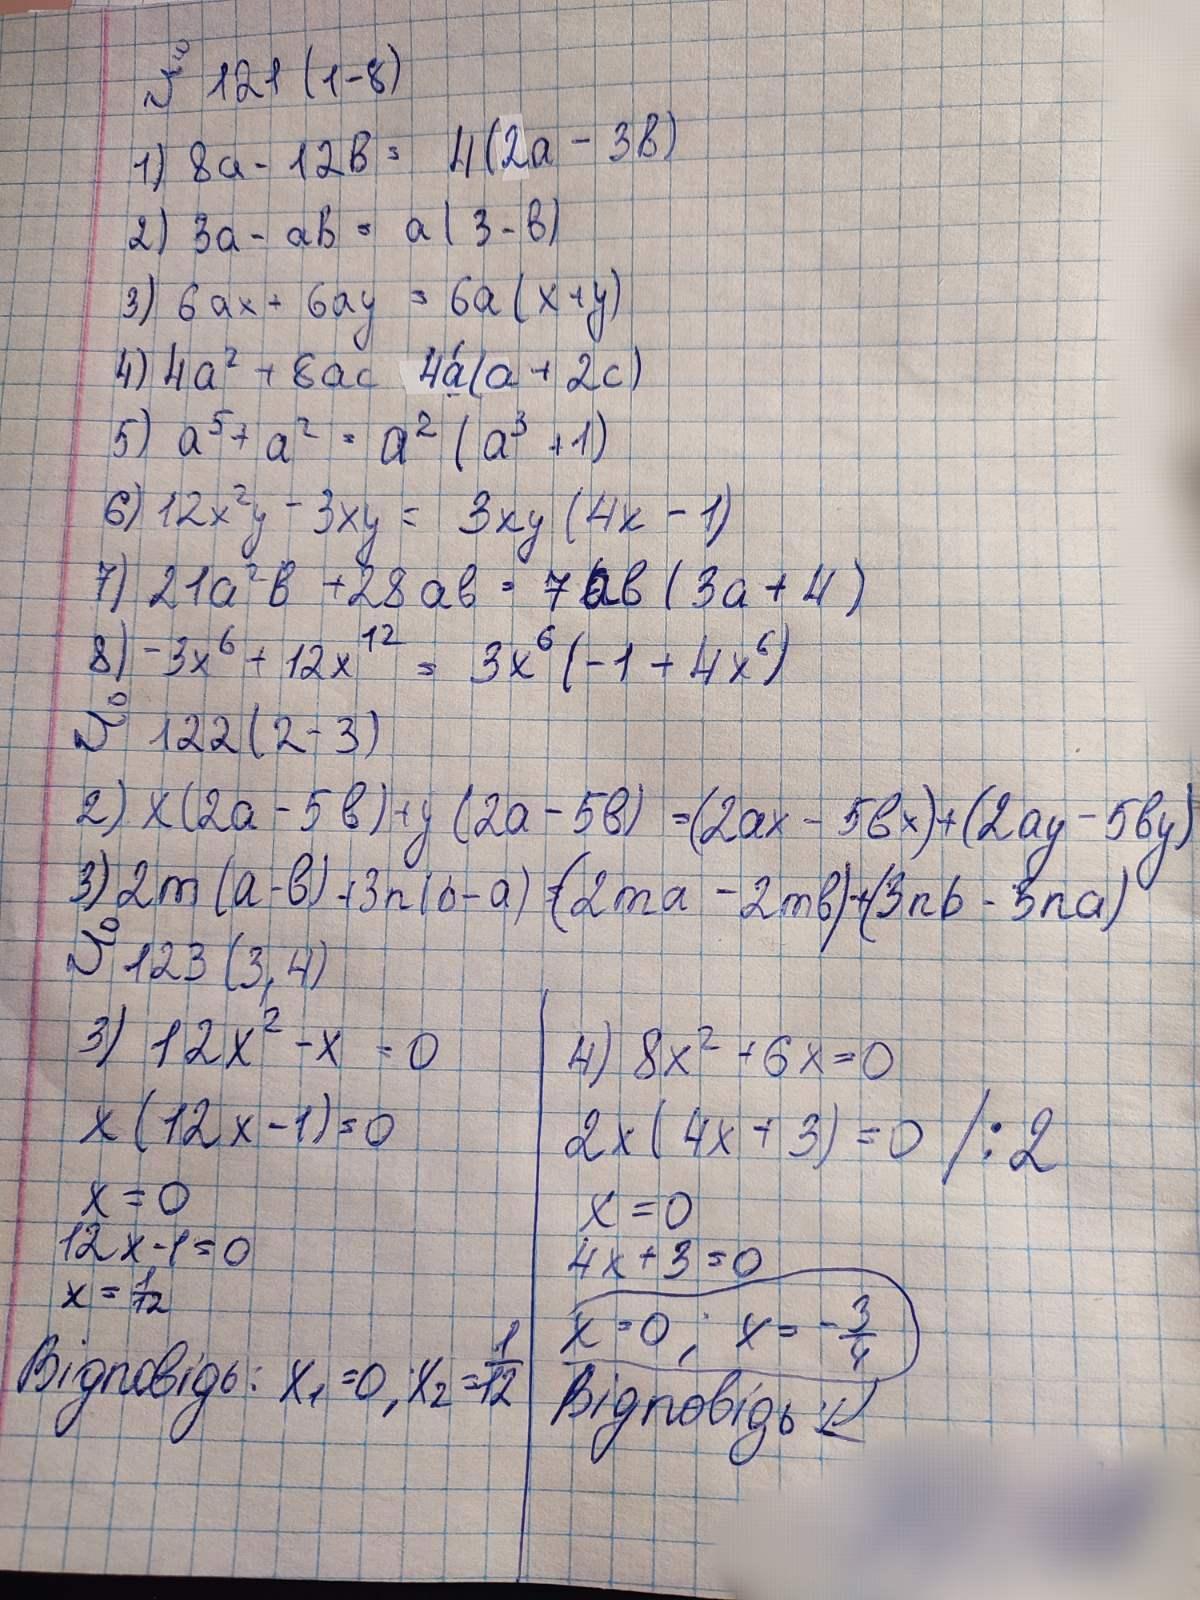 № 121 (1-8)
1) 8a - 12b = 4(2a - 3b)
2) 3a - ab = a(3 - b)
3) 6ax + 6ay = 6a(x+y)
4) 4a² + 8ac 4a(a + 2c)
5) a⁵ + a² = a² (a³ + 1)
6) 12x²y - 3xy = 3xy (4x - 1)
7) 21a²b + 28ab = 7ab (3a + 4)
8) -3x⁶ + 12x¹² = 3x⁶ (-1 + 4x⁶)
№ 122 (2-3)
2) x(2a - 5b) + y(2a - 5b) = (2ax - 5bx) + (2ay - 5by)
3) 2m(a-b) + 3n(b-a) = (2ma - 2mb) + (3nb - 3na)
№ 123 (3,4)
3) 12x² - x = 0
x(12x - 1) = 0
x = 0
12x - 1 = 0
x = 1/12
Відповідь: x₁ = 0, x₂ = 1/12
4) 8x² + 6x = 0
2x(4x + 3) = 0 /:2
x = 0
4x + 3 = 0
x = 0; x = -3/4
Відповідь: